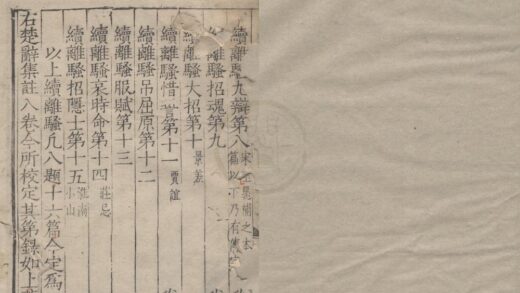 續離騷九辯第八 宋玉晁補之本
篇以下乃有續
續離騷招魂第九
續離騷大招第十 景差
續離騷惜誓第十一 賈誼
續離騷吊屈原第十二
續離騷服賦第十三
續離騷哀時命第十四 莊忌
續離騷招隱士第十五 淮南
小山
以上續離騷凡八題十六篇今定爲
右楚辭集註八卷今所校定其第錄如上